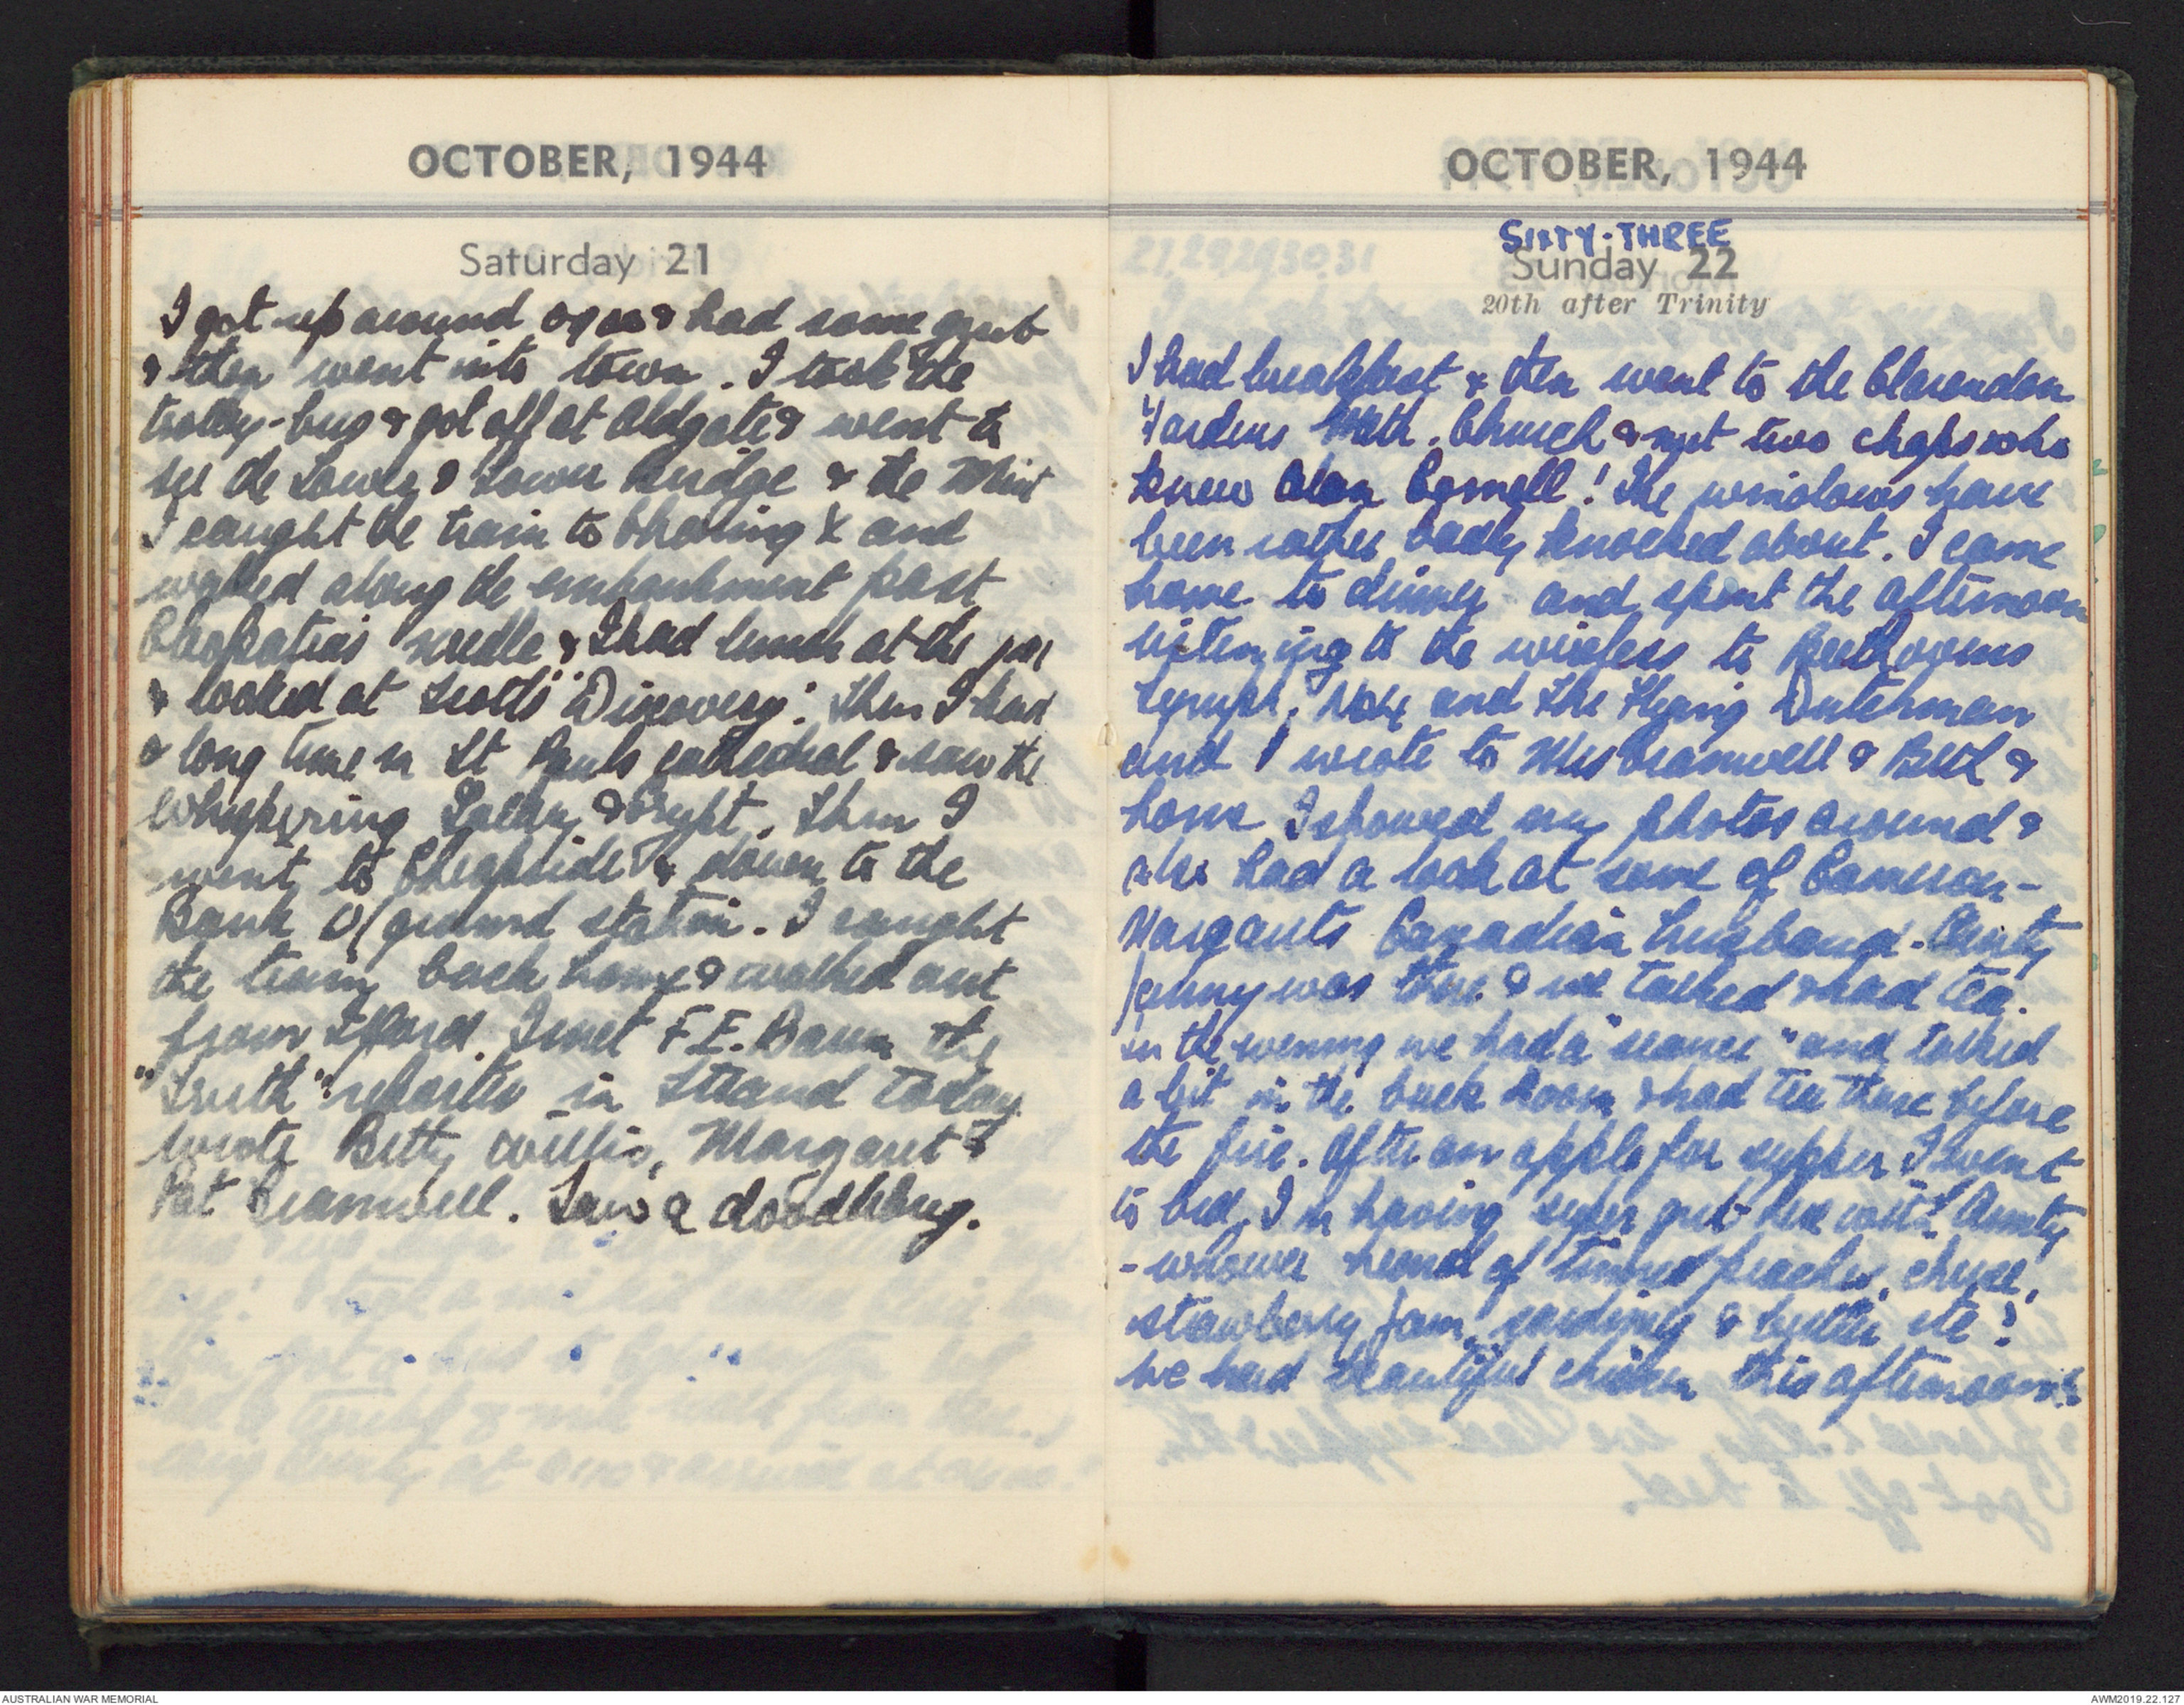 OCTOBER, 1944
Saturday 21
I got up around 0900 & had some grub
& then went into town. I took the
trolley-bus & got off at Aldgate & went to
see the Tower & Tower Bridge & the Mint
I caught the train to Charing X and
walked along the embankment past
Cleopatras needle & I had lunch at the
& looked at Scotts "Discovery". Then I had
a long time in St Pauls cathedral & saw the
Whispering Gallery & Crypt. Then I
went to Cheapside & down to the
Bank U/ground station. I caught
the train back home & walked out
from Ilford. I met F.E. Baum the
"Truth" reporter in Strand today
wrote Betty Willis, Margaret &
Pat Bramwell. Saw a doodlebug.
OCTOBER, 1944
SIXTY-THREE
Sunday 22
20th after Trinity
I had breakfast & then went to the Clarendon
Gardens Meth. Church & met two chaps who
knew Alan Cornell! The windows have
been rather badly knocked about. I came
home to dinner and spent the afternoon
listening to the wireless to Beethovens
Symph. No 4 and The Flying Dutchman
and I wrote to Mrs Bramwell & Beth &
home I showed my photos around &
also had a look at some of Cameron-
Margarets Canadian husband. Aunty
Jenny was there & we talked & had tea.
In the evening we had a "seance" and talked
a bit in the back room & had tea there before
the fire. After an apple for supper I went
to bed. I'm having super grub here with Aunty
- whoever heard of tinned peaches, cheese,
strawberry jam, sardines & butter etc?
We had beautiful chicken this afternoon!!
AUSTRALIAN WAR MEMORIAL
AWM2019.22.127